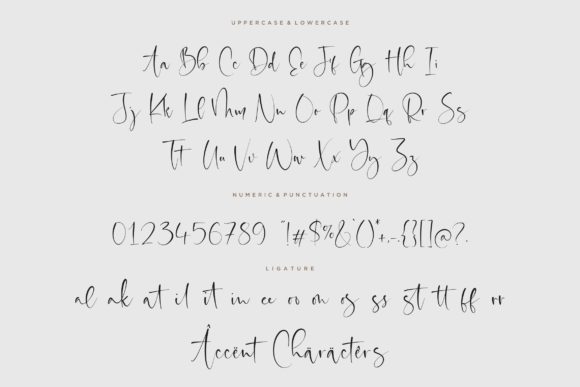 UPPERCASE & LOWERCASE
Aa Bb Cc Dd Ee Ff Gg Hh Ii
Jj Kk Ll Mm Nn Oo Pp Qq Rr Ss
Tt Uu Vv Ww Xx Yy Zz
NUMERIC & PUNCTUATION
0123456789 "!#$%&'()*+,-.{}[]@?.
LIGATURE
al ak at il it in ee oo on os ss st tt ff rr
Âccënt Chäräctêrs